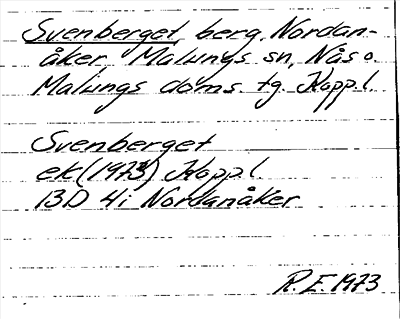 Svenberget, berg, Nordan-
åker, Malungs sn, Nås o.
Malungs doms. tg. Kopp.l.
Svenberget
ek (1973) Kopp.l.
13D 4i Nordanåker
R.E. 1973